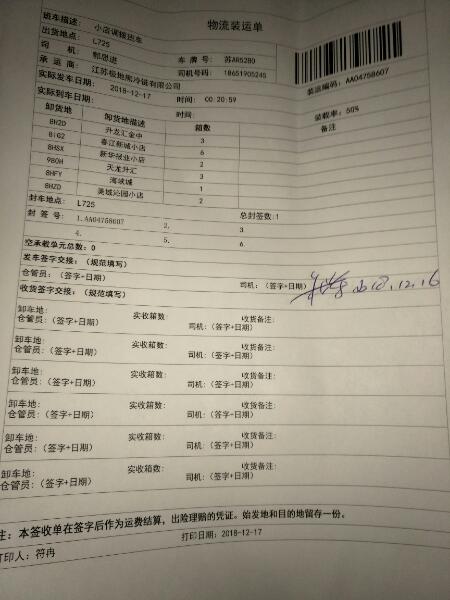 物流装运单
班车描述: 小店调拨班车
出货地点: L725
司 机: 郭思进 车 牌 号: 苏AR52B0
承 运 商: 江苏极地熊冷链有限公司 司机号码: 18651905245
装运编码: AA04758607
实际发车日期: 2018-12-17 时间: 00:20:59
装载率: 50%
实际到车日期: 时间:
卸货地 卸货地描述 箱数 备注
8H2D 升龙汇金中 3
8IG2 春江新城小店 6
8HSX 新华报业小店 2
980H 天龙升汇 3
8HFY 海峡城 1
8HZD 美城沁园小店 2
封车地点: L725 总封签数:1
封 签 号: 1.AA04758607 2. 3.
4. 5. 6.
空承载单元总数: 0
发车签字交接: (规范填写)
仓管员: (签字+日期) 司机: (签字+日期) 2018.12.16
收货签字交接: (规范填写)
卸车地: 实收箱数: 收货备注:
仓管员: (签字+日期) 司机: (签字+日期)
卸车地: 实收箱数: 收货备注:
仓管员: (签字+日期) 司机: (签字+日期)
卸车地: 实收箱数: 收货备注:
仓管员: (签字+日期) 司机: (签字+日期)
卸车地: 实收箱数: 收货备注:
仓管员: (签字+日期) 司机: (签字+日期)
卸车地: 实收箱数: 收货备注:
仓管员: (签字+日期) 司机: (签字+日期)
卸车地: 实收箱数: 收货备注:
仓管员: (签字+日期) 司机: (签字+日期)
注: 本签收单在签字后作为运费结算, 出险理赔的凭证。始发地和目的地留存一份。
打印人: 符冉 打印日期: 2018-12-17